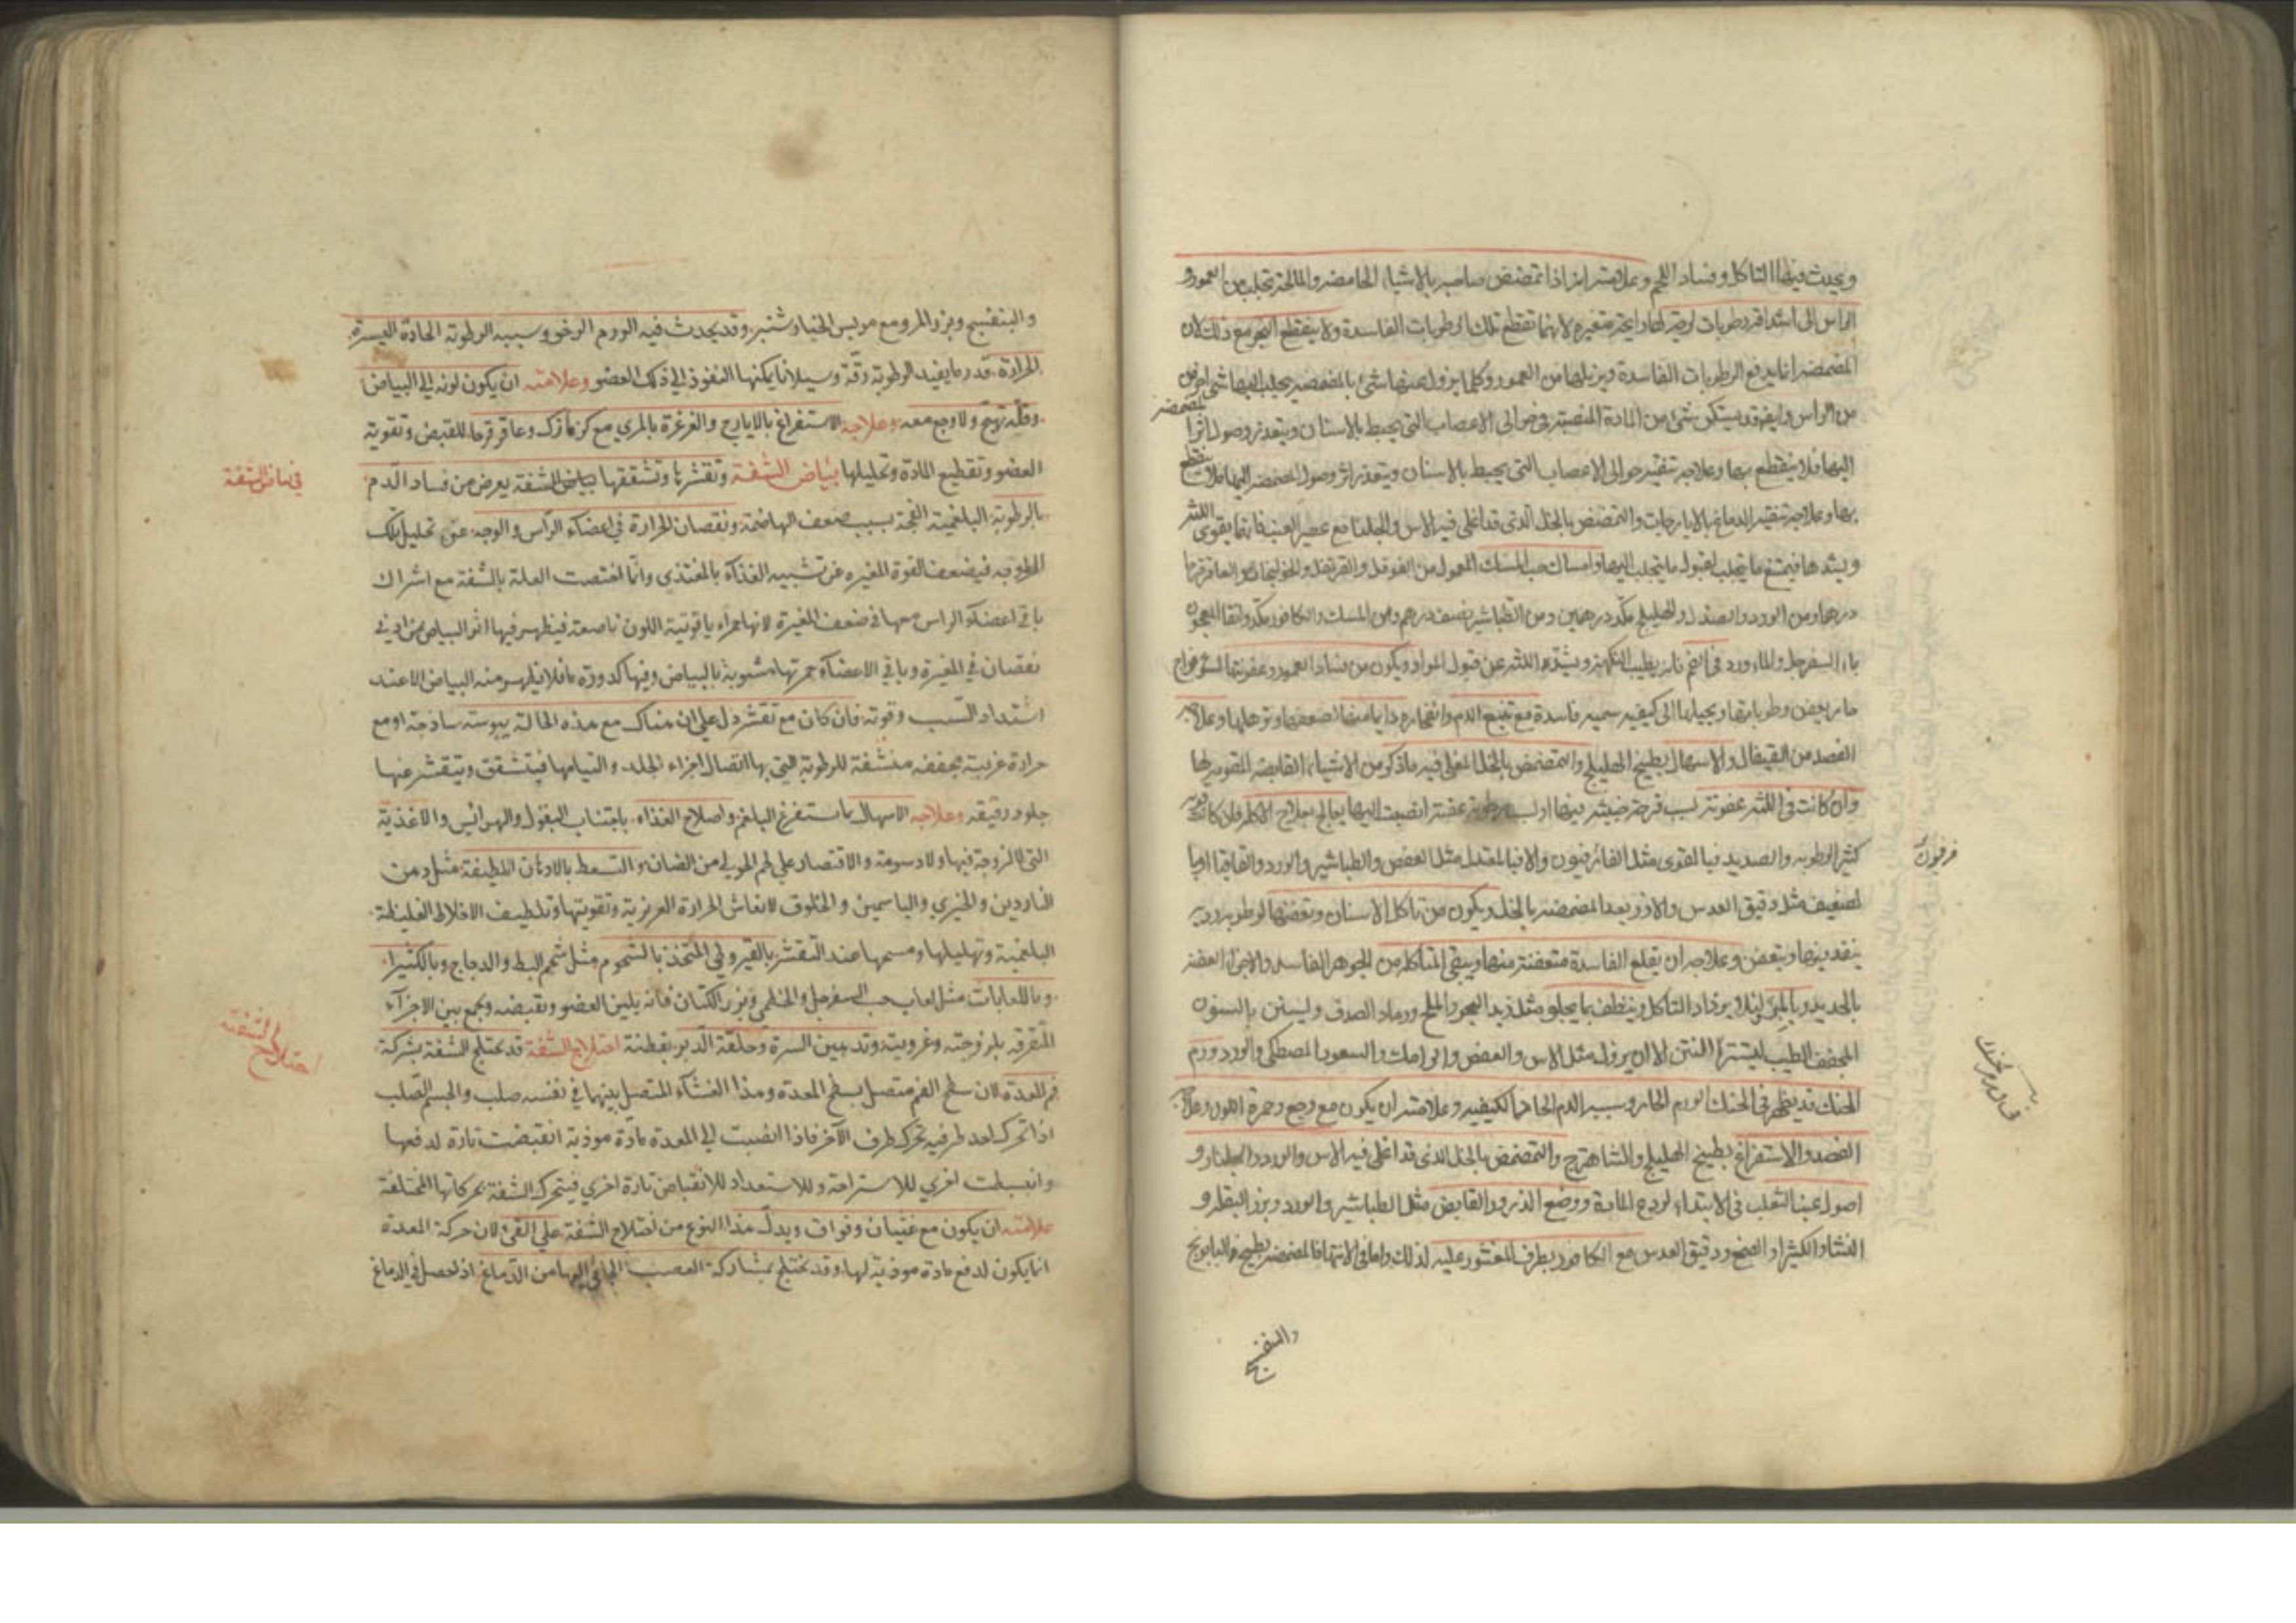 ويحدث فيها التاكل وفساد اللحم وعلامته انه اذا تمضمض صاحبه بالاشياء الحامضة والمالحة تجلب من العمور و
الراس الى رطوبات لزجة لانها تقطع تلك الرطوبات الفاسدة ولا ينقطع البخر مع ذلك لان
المضمضة انما يدفع الرطوبات الفاسدة ويزيلها من العمور وكلما يزول عنها شئ بالمضمضة يجلب اليها شئ اخر من
المضمضة
من الراس وايضا قد يستكن شئ من المادة المنصبة في حوالى الاعصاب التى يحيط بالاسنان ويتعذر وصول اثرها
اليها فلا ينقطع بها وعلاجه تنقية حوالى الاعصاب التى يحيط بالاسنان ويتعذر اثر وصول المضمضة اليها فلا ينقطع
بها وعلاجه تنقية الدماغ بالايارجات والتمضمض بالخل الذى قد اغلى فيه الاس والجلنار مع عصير العنب فانها يقوى اللثة
ويشدها فيمتنع ما يتجلب لقبول ما يتجلب اليها وامساك حب المسك المعمول من الفوفل والقرنفل والخولنجان والعاقرقرحا
درهم ومن الورد والصندل والهليلج مكد درهمين ومن الطباشير نصف درهم ومن المسك والكافور مكد دانقا المعجون
بماء السفرجل والماء ورد فى الفم فانه يطيب النكهة ويشد اللثة عن قبول المواد ويكون من فساد العمور وعفونتها لسوء مزاج
حار يعفن رطوباتها ويحيلها الى كيفية سمية فاسدة مع تتبع الدم وانفجاره دايما منها لضعفها وترهلها وعلاجه
الفصد من القيفال والاسهال بطبيخ الهليلج والتمضمض بالخل المغلى فيه ما ذكر من الاشياء القابضة المقوية لها
وان كانت فى اللثة عفونة لسبب قرحة خبيثة فيها او لسبب رطوبة عفنة انصبت اليها يعالج بعلاج الاكلة فان كانت قوية
كثير الرطوبة والصديد فبالقوى مثل الفلدفيون والا فبالمعتدل مثل العفص والطباشير والورد والقاقيا او بالـ
فرفيون
لضعيف مثل دقيق العدس والارز بعد المضمضة بالخل ويكون من تاكل الاسنان وتعفنها لرطوبة ردية
ينفذ فيها ويتعفن وعلاجه ان يقلع الفاسدة متعفنة منها ويبقى المتاكل من الجوهر الفاسد والاجزاء العفنة
بالحديد وبالمبرد لئلا يزداد التاكل وينظف بما يجلو مثل زبد البحر والملح ورماد الصدف وليستن بالسنون
المجفف الطيب ليستتر النتن الا ان يزول مثل الاس والعفص والرامك والسعد والمصطكى والورد ورم
الحنك قد يظهر فى الحنك الورم الحار وسببه الدم الحاد الكيفية وعلامته ان يكون مع وجع وحمرة اللون وعلاجه
الفصد والاستفراغ بطبيخ الهليلج والشاهترج والتمضمض بالخل الذى قد اغلى فيه الاس والورد والجلنار و
اصول عنب الثعلب فى الابتداء لردع المادة ووضع الذرور القابض مثل الطباشير والورد وبزر البقلة و
النشا والكثيرا والصمغ ودقيق العدس مع الكافور بطرف الملعقة عليه لذلك واما فى الانتهاء فالمضمضة بطبيخ البابونج
والبنفسج
والبنفسج وبزر المرو مع مريس الخيار شنبر وقد يحدث فيه الورم الرخو وسببه الرطوبة الحادة اليسيرة
الحرارة قدر ما يفيد الرطوبة رقة وسيلانا يمكنها النفوذ الى ذلك العضو وعلامته ان يكون لونه الى البياض
وقلة تهيج ولا وجع معه وعلاجه الاستفراغ بالايارج والغرغرة بالمري مع كزمازك وعاقرقرحا للقبض وتقوية
العضو وتقطيع المادة وتحليلها بياض الشفة وتقشرها وتشققها بياض الشفة يعرض من فساد الدم
في بياض الشفة
بالرطوبة البلغمية الفجة بسبب ضعف الهاضمة ونقصان الحرارة في اعضاء الراس والوجه عن تحليل تلك
الرطوبة فيضعف القوة المغيرة عن تشبيه الغذاء بالمغتذي وانما اختصت العلة بالشفة مع اشراك
باقي اعضاء الراس معها في ضعف المغيرة لانها حمراء ياقوتية اللون ناصعة فيظهر فيها اثر البياض من ادنى
نقصان في المغيرة وباقي الاعضاء حمرتها مشوبة بالبياض وفيها كدورة ما فلا يظهر منه البياض الا عند
اشتداد السبب وقوته فان كان مع تقشر دل على ان هناك مع هذه الحالة يبوسة ساذجة او مع
حرارة غريبة مجففة منشفة للرطوبة التي بها اتصال اجزاء الجلد والتيامها فيتشقق ويتقشر عنها
جلود رقيقة وعلاجه الاسهال بما يستفرغ البلغم واصلاح الغذاء باجتناب البقول والهرائس والاغذية
التي لا لزوجة فيها ولا دسومة والاقتصار على لحم الحولي من الضان والتسعط بالادهان اللطيفة مثل دهن
الناردين والخيري والياسمين والخلوق لانعاش الحرارة الغريزية وتقويتها وتلطيف الاخلاط الغليظة
البلغمية وتحليلها ومسحها عند التقشر بالقيروطي المتخذ بالشحوم مثل شحم البط والدجاج وبالكثيرا
وباللعابات مثل لعاب حب السفرجل والخطمي وبزر الكتان فانه يلين العضو ويقبضه ويجمع بين الاجزاء
المتفرقة بلزوجته وغرويته وتدهين السرة وحلقة الدبر بقطنة اختلاج الشفة قد يختلج الشفة بشركة
اختلاج الشفة
فم المعدة لان سطح الفم متصل بسطح المعدة وهذا الغشاء المتصل بينهما في نفسه صلب والجسم الصلب
اذا تحرك احد طرفيه تحرك طرف الآخر فاذا انصبت الى المعدة مادة موذية انقبضت تارة لدفعها
وانبسطت اخري للاستراحة وللاستعداد للانقباض تارة اخري فيتحرك الشفة بحركاتها المختلفة
علامته ان يكون مع غثيان وفواق ويدل هذا النوع من اختلاج الشفة على القئ لان حركة المعدة
انما يكون لدفع مادة موذية لها وقد يختلج بمشاركة العصب الجائي اليها من الدماغ اذا حصل في الدماغ